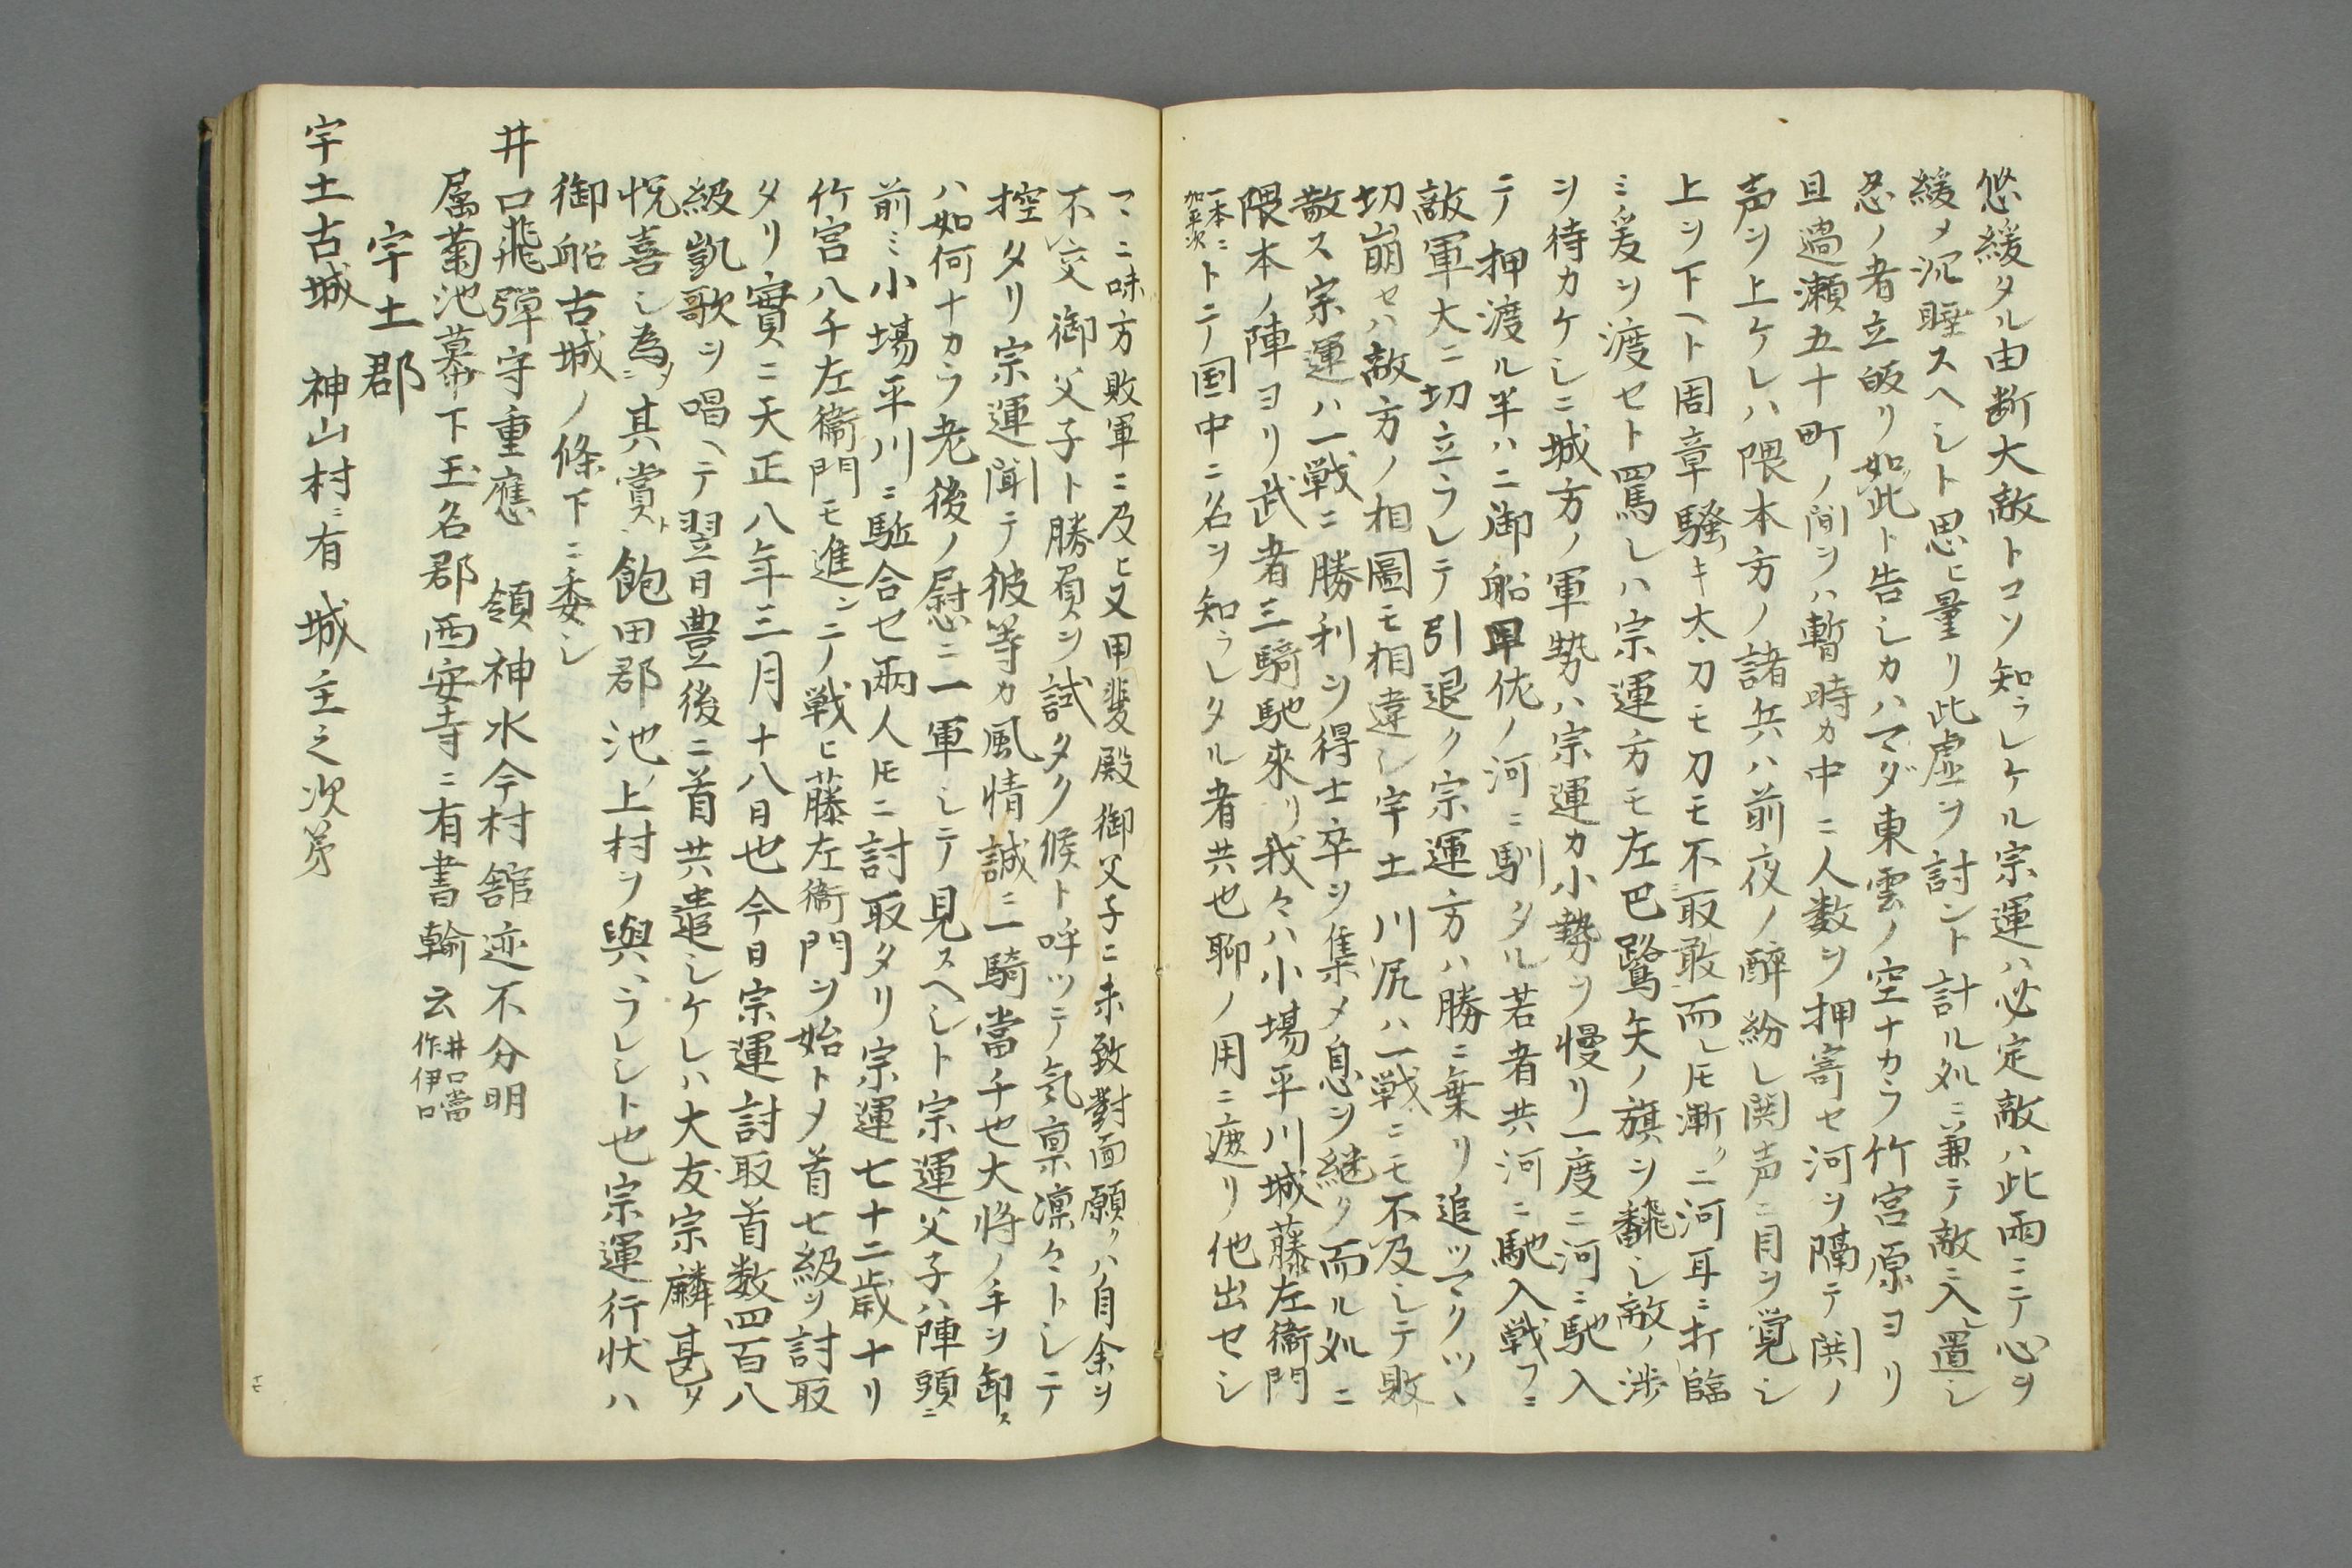 悠緩タル由断大敵トコソ知ラレケル宗運ハ必定敵ハ此雨ニテ心ヲ
緩メ沉睡スヘシト思ヒ量リ此虚ヲ討ント計ル処ニ兼テ敵ニ入置シ
忍ノ者立皈リ如此ト告シカハマダ東雲ノ空ナカラ竹宮原ヨリ
且過瀬五十町ノ間ヲハ暫時カ中ニ人数ヲ押寄セ河ヲ隔テ鬨ノ
声ヲ上ケレハ隈本方ノ諸兵ハ前夜ノ醉紛レ鬨声ニ目ヲ覚シ
上ヲ下ヘト周章騒キ太刀モ刀モ不取敢而シ𪜈漸クニ河耳ニ打臨
ミ爰ヲ渡セト罵レハ宗運方モ左巴鷺矢ノ旗ヲ飜シ敵ノ渉
ヲ待カケシニ城方ノ軍勢ハ宗運カ小勢ヲ慢リ一度ニ河ニ馳入
テ押渡ル半ハニ御船甲佐ノ河ニ馴タル若者共河ニ馳入戦フニ
敵軍大ニ切立ラレテ引退ク宗運方ハ勝ニ乗リ追ツマクツヽ
切崩セハ敵方ノ相圖モ相違シ宇土川尻ハ一戦ニモ不及シテ敗
散ス宗運ハ一戦ニ勝利ヲ得士卒ヲ集メ息ヲ継ク而ル処ニ
隈本ノ陣ヨリ武者三騎馳來リ我々ハ小場平川城藤左衛門
一本ニ加平次トテ国中ニ名ヲ知ラレタル者共也聊ノ用ニ遮リ他出セシ
マヽニ味方敗軍ニ及ヒ又甲斐殿御父子ニ未致對面願クハ自余ヲ
不交御父子ト勝負ヲ試タク候ト呼ツテ氣稟凛々トシテ
控タリ宗運聞テ彼等カ風情誠ニ一騎當千也大将ノ手ヲ卸ス
ハ如何ナカラ老後ノ慰ニ一軍シテ見スヘシト宗運父子ハ陣頭ニ
前ミ小場平川ニ駈合セ兩人𪜈ニ討取タリ宗運七十二歳ナリ
竹宮八千左衛門モ進ンテノ戦ヒ藤左衛門ヲ始トメ首七級ヲ討取
タリ實ニ天正八年三月十八日也今日宗運討取首数四百八
級凱歌ヲ唱ヘテ翌日豊後ニ首共遣シケレハ大友宗麟甚タ
悦喜シ為ニ其賞ト飽田郡池ノ上村ヲ與ヘラレシト也宗運行状ハ
御船古城ノ條下ニ委シ
井口飛彈守重應　領神水今村舘迹不分明
属菊池幕下玉名郡西安寺ニ有書翰云井口當作伊口
宇土郡
宇土古城　神山村ニ有　城主之次第